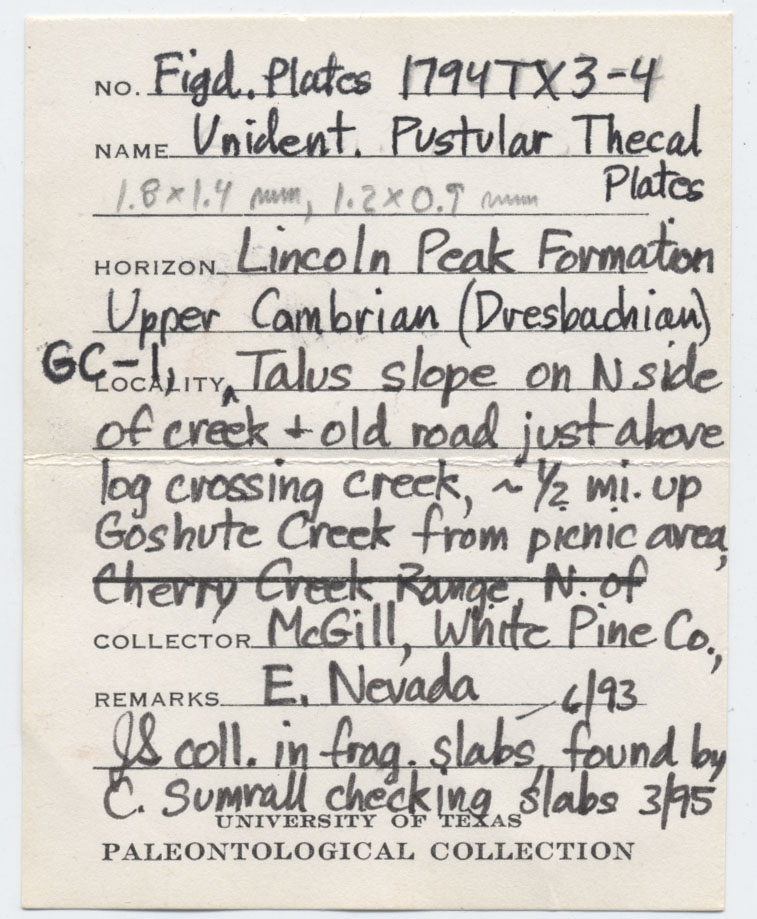 NO. Figd. Plates 1794TX3-4
NAME Unident. Pustular Thecal
Plates
1.8 x 1.4 mm, 1.2 x 0.9 mm
HORIZON Lincoln Peak Formation
Upper Cambrian (Dresbachian)
GC-1,
LOCALITY ^ Talus slope on N side
of creek + old road just above
log crossing creek, ~ 1/2 mi. up
Goshute Creek from picnic area,
Cherry Creek Range, N. of
COLLECTOR McGill, White Pine Co.,
REMARKS E. Nevada 6/93
JS coll. in frag. slabs, found by
C. Sumrall checking slabs 3/95
UNIVERSITY OF TEXAS
PALEONTOLOGICAL COLLECTION